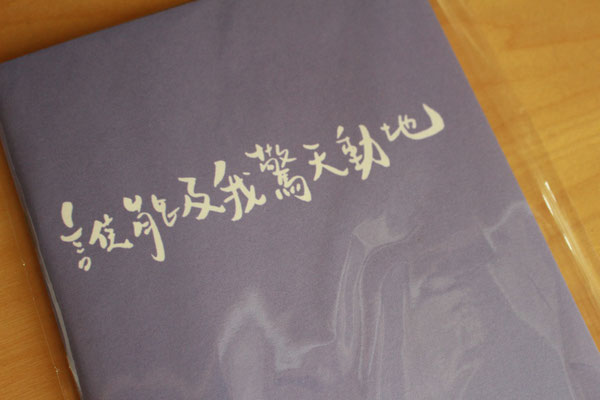 誰能及我驚天動地